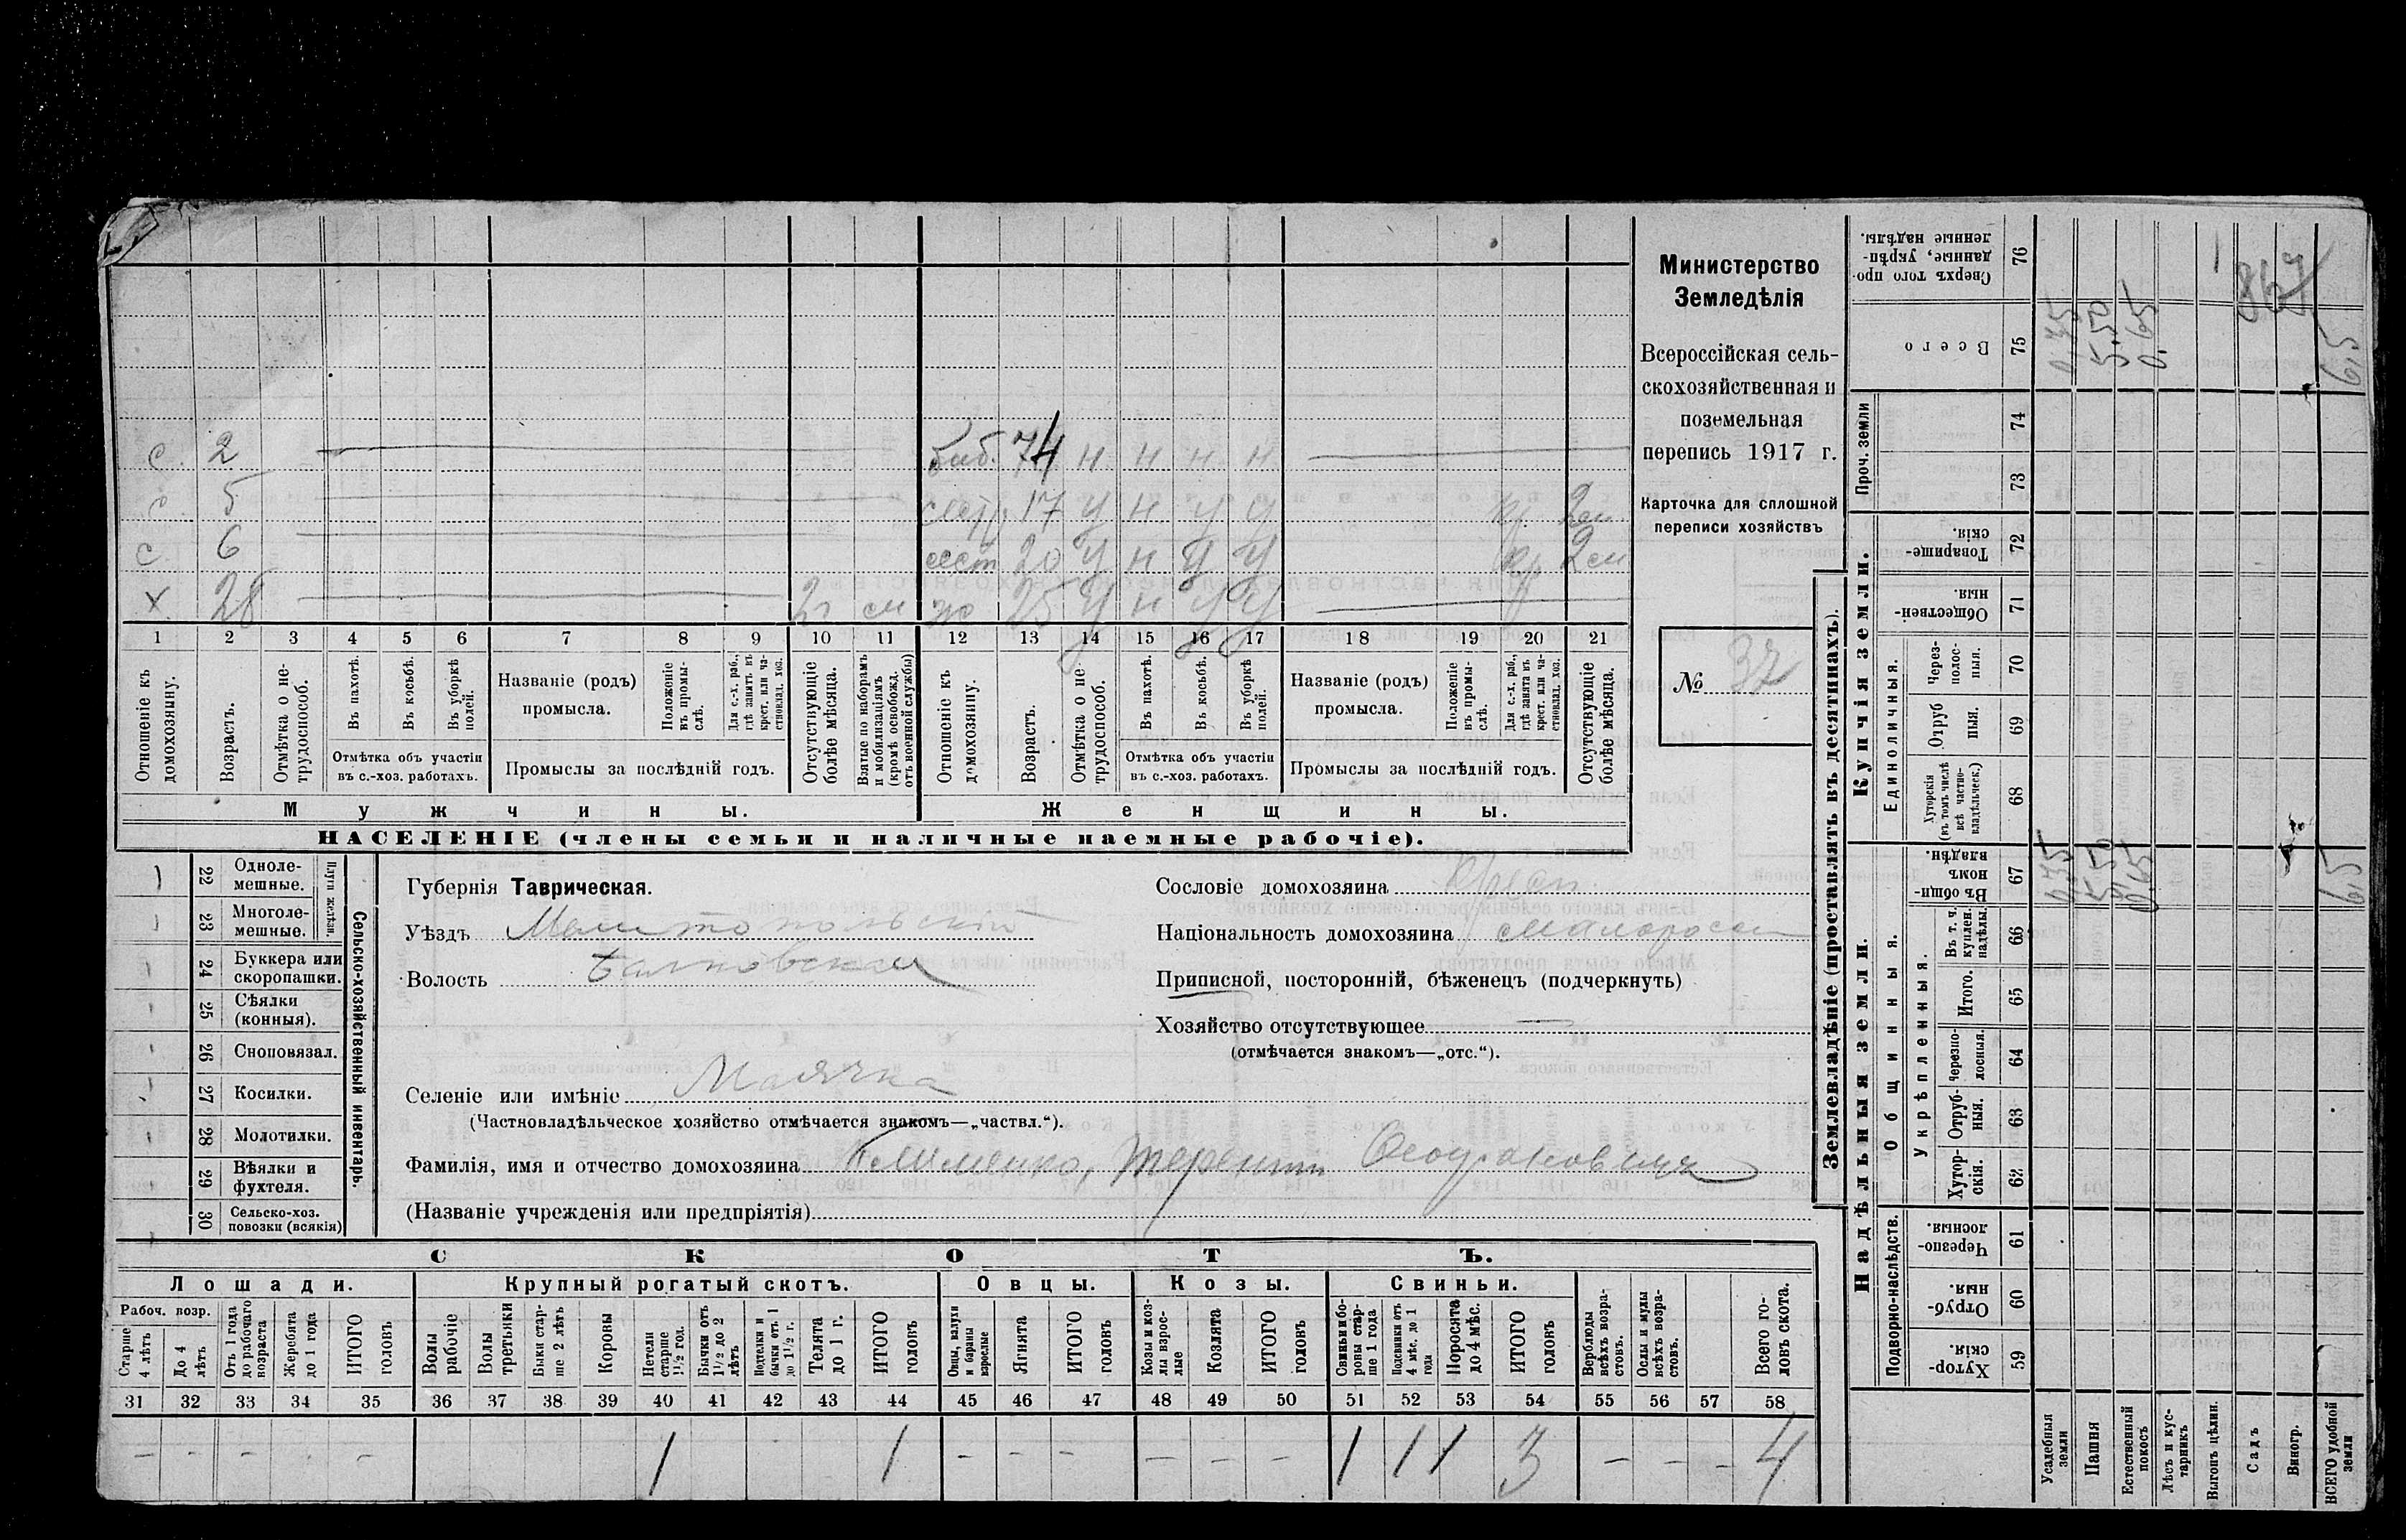 Министерство
Земледѣлія
Всероссійская сель-
скохозяйственная и
поземельная
перепись 1917 г.
Карточка для сплошной
переписи хозяйствъ
№ 37
с 2
баб. 74 н н н н
с 5
сестр. 17 у н у у кр. 2 см
с 6
сест 20 у н у у кр. 2 см
х 28 2г см
жо 25 у н у у
1 2 3 4 5 6 7 8 9 10 11 12 13 14 15 16 17 18 19 20 21
Отношеніе къ домохозяину.
Возрастъ.
Отмѣтка о не-трудоспособ.
Въ пахотѣ.
Въ косьбѣ.
Въ уборкѣ полей.
Отмѣтка объ участіи
въ с.-хоз. работахъ.
Названіе (родъ)
промысла.
Положеніе въ промы-слѣ.
Для с.-х. раб., гдѣ занятъ въ крест. или ча-стновлад. хоз.
Промыслы за послѣдній годъ.
Отсутствующіе болѣе мѣсяца.
Взятые по наборамъ и мобилизаціямъ (кромѣ освобожд. отъ военной службы)
Отношеніе къ домохозяину.
Возрастъ.
Отмѣтка о не трудоспособ.
Въ пахотѣ.
Въ косьбѣ.
Въ уборкѣ полей.
Отмѣтка объ участіи
въ с.-хоз. работахъ.
Названіе (родъ)
промысла.
Положеніе въ промы-слѣ.
Для с.-х. раб., гдѣ занята въ крест. или ча-стновлад. хоз.
Промыслы за послѣдній годъ.
Отсутствующіе болѣе мѣсяца.
Мужчины.
Женщины.
НАСЕЛЕНІЕ (члены семьи и наличные наемные рабочіе).
Сельско-хозяйственный инвентарь.
Плуги желѣзн.
22 Одноле-мешные.
23 Многоле-мешные.
24 Буккера или скоропашки.
25 Сѣялки (конныя).
26 Сноповязал.
27 Косилки.
28 Молотилки.
29 Вѣялки и фухтеля.
30 Сельско-хоз. повозки (всякія)
Губернія Таврическая.
Уѣздъ Мелитопольскій
Волость
Сословіе домохозяина Крест.
Національность домохозяина малоросс
Приписной, посторонній, бѣженецъ (подчеркнуть)
Хозяйство отсутствующее —
(отмѣчается знакомъ—„отс.“).
Селеніе или имѣніе Маячка
(Частновладѣльческое хозяйство отмѣчается знакомъ—„частвл.“).
Фамилія, имя и отчество домохозяина Клименко, Терентій
(Названіе учрежденія или предпріятія)
СКОТЪ.
Лошади. Крупный рогатый скотъ. Овцы. Козы. Свиньи.
Рабоч. возр.
Старше 4 лѣтъ
До 4 лѣтъ
Отъ 1 года до рабочаго возраста
Жеребята до 1 года
ИТОГО головъ
Волы рабочіе
Волы третьяки
Быки стар-ше 2 лѣтъ
Коровы
Нетели старше 1½ год.
Бычки отъ 1½ до 2 лѣтъ
Подтелки и бычки отъ 1 до 1½ г.
Телята до 1 г.
ИТОГО головъ
Овцы, валухи и бараны взрослые
Ягнята
ИТОГО головъ
Козы и коз-лы взрос-лые
Козлята
ИТОГО головъ
Свиньи и бо-ровы стар-ше 1 года
Подсвинки отъ 4 мѣс. до 1 года
Поросята до 4 мѣс.
ИТОГО головъ
Верблюды всѣхъ возра-стовъ.
Ослы и мулы всѣхъ возра-стовъ.
Всего го-ловъ скота.
31 32 33 34 35 36 37 38 39 40 41 42 43 44 45 46 47 48 49 50 51 52 53 54 55 56 57 58
– – – – – 1 1 – – – – – – 1 1 1 3 – – – 4
Землевладѣніе (проставлять въ десятинахъ).
Купчія земли.
Проч. земли
Единоличныя.
Надѣльныя земли.
Общинныя.
Укрѣпленныя.
Подворно-наслѣдств.
76 Сверхъ того про-данные, укрѣп-ленные надѣлы.
75 Всего
74
73
72 Товарище-скія.
71 Обществен-ныя.
70 Через-полос-ныя.
69 Отруб ныя.
68 Хуторскія (въ томъ числѣ всѣ частно-владѣльческ.)
67 Въ общин-номъ владѣн.
66 Въ т. ч. куплен. надѣлы.
65 Итого.
64 Черезпо-лосныя.
63 Отруб-ныя.
62 Хутор-скія.
61 Черезпо-лосныя.
60 Отруб-ныя.
59 Хутор-скія.
0.35 5.50 0.65 6,5
0.35 5.50 0.65 6,5
Усадебныя земли
Пашня
Естественный покосъ
Лѣсъ и кус-тарникъ
Выгонъ цѣлин.
Садъ
Виногр.
ВСЕГО удобной земли